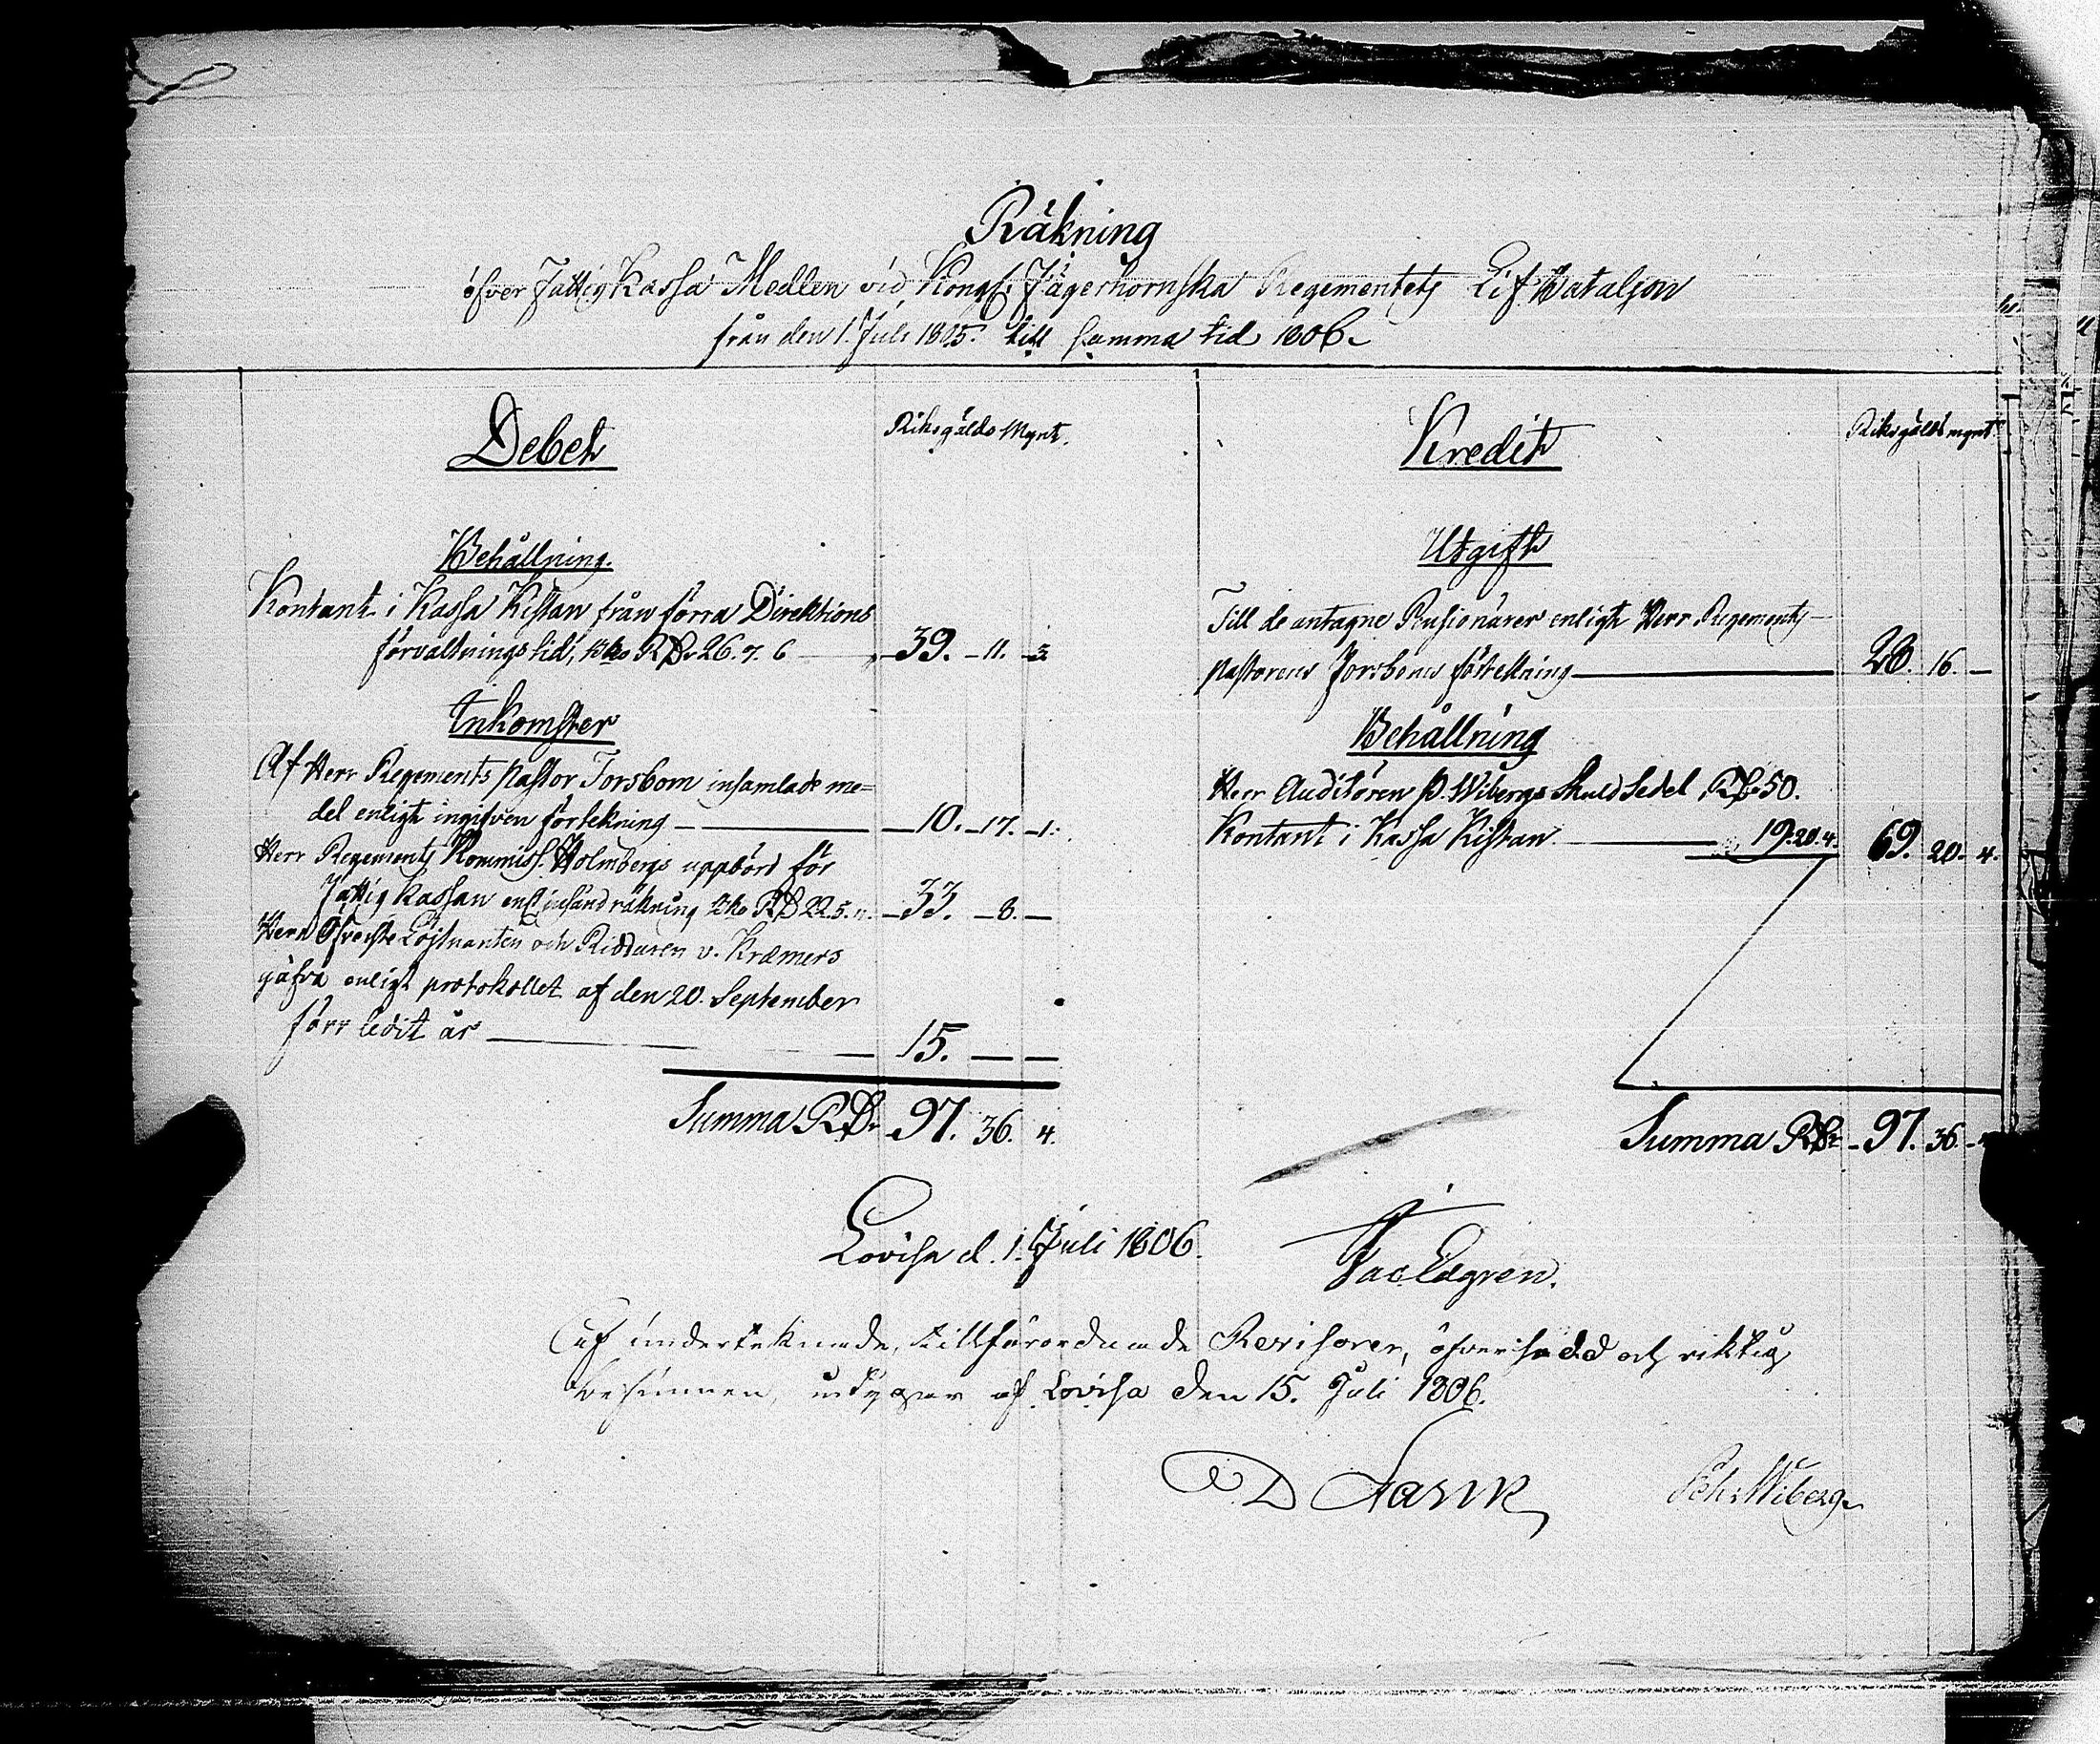 Räkning
öfver Fattig Kassa Medlen vid Kongl. Jägerhornska Regementets Lif Bataljon
från den 1. Juli 1805. till samma tid 1806.
Debet
Riksgälds Mynt.
Behållning.
Kontant i Kassa Kistan från förra Direktions
förvaltnings tid, Bko RDr 26. 7. 6 39. 11. 3
Inkomster
Af Herr Regements Pastor Forsbom insamlade me=
del enligt ingifven förtekning 10. 17. 1.
Herr Regements Kommiss. Holmbergs uppbörd för
Fattig Kassan enl. insänd räkning Bko RD 22. 5. 33. 8.
Herr Öfverste Löjtnanten och Riddaren v. Kræmers
gåfva enligt protokollet af den 20. September
förr ledit år 15.
Summa RDr 97. 36. 4.
Kredit
Riksgälds mynt
Utgift
Till de antagne Pensionärer enligt Herr Regements
pastorens Forsboms förtekning 28. 16.
Behållning
Herr Auditören P. Wibergs Skuld Sedel RDr 50.
Kontant i Kassa Kistan 19. 20. 4. 69. 20. 4.
Summa RDr 97. 36.
Lovisa d. 1. Juli 1806.
Jac Edgren.
Af underteknade, tillförordnade Revisorer, öfversedd och riktig
befunnen, af Lovisa den 15. Juli 1806.
Peh: Wiberg